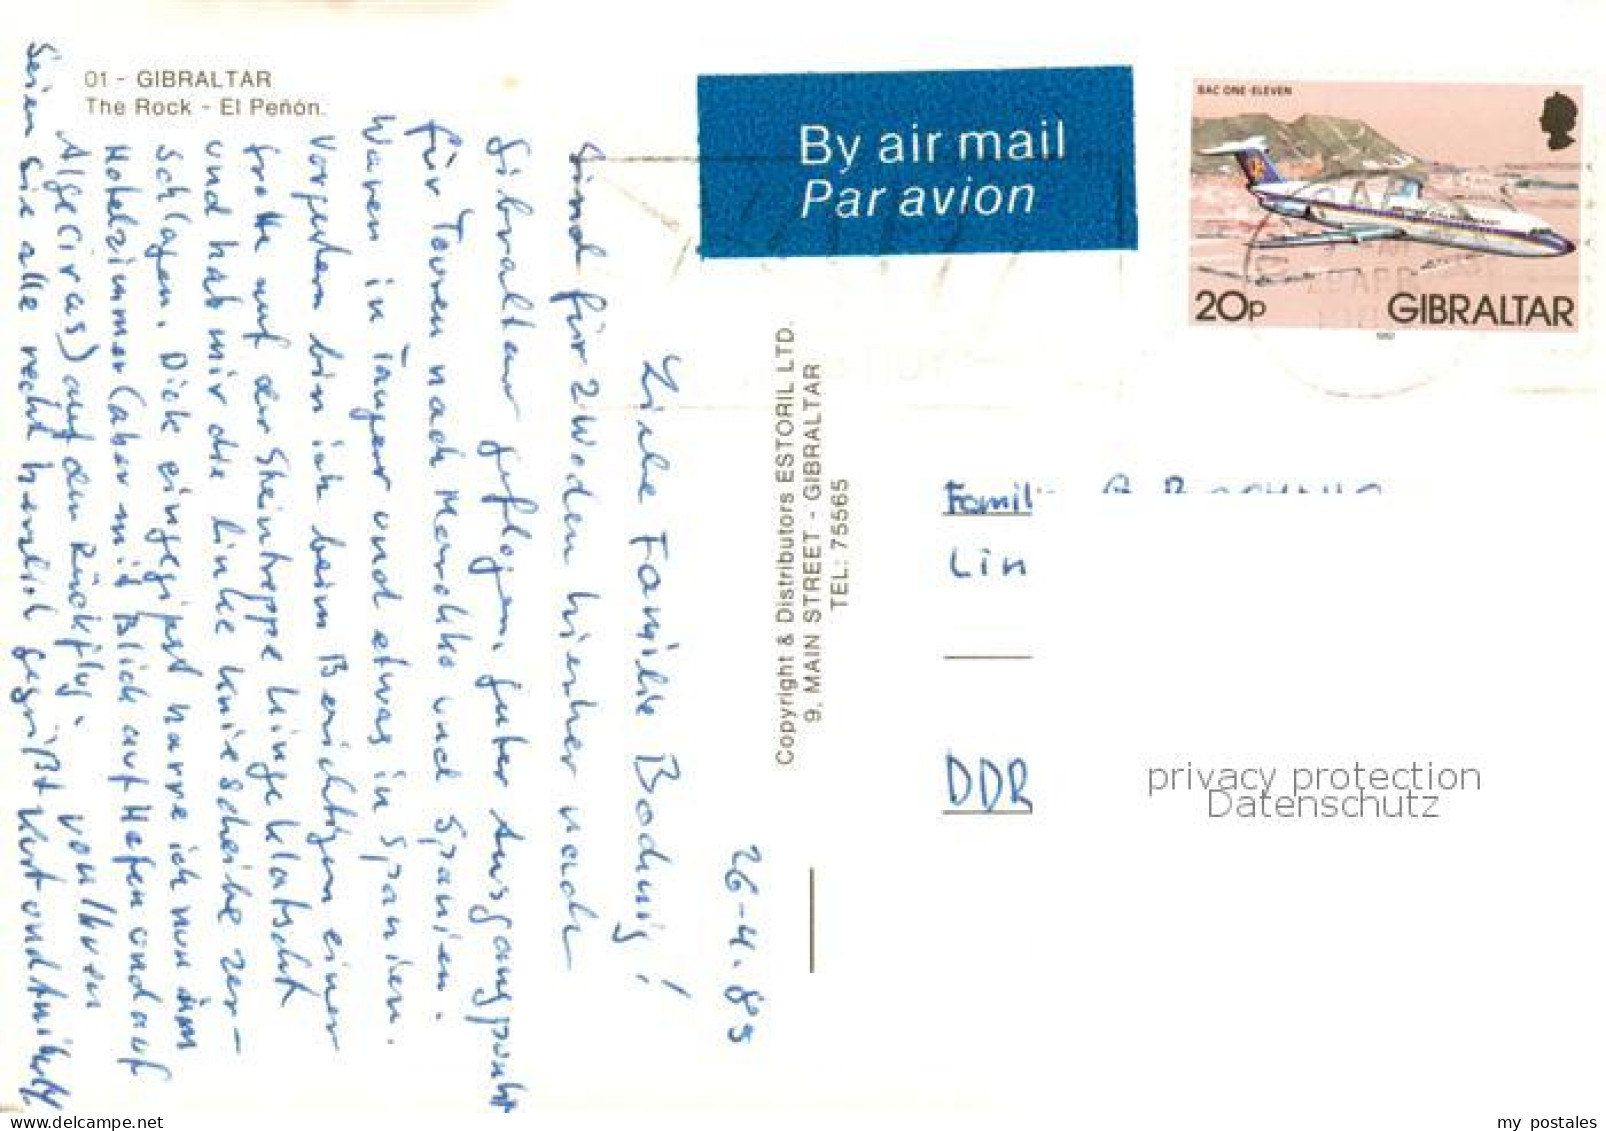 01 - GIBRALTAR
The Rock - El Peñón.
By air mail
Par avion
BAC ONE-ELEVEN
20p GIBRALTAR
1982
26-4.85
Liebe Familie Bochnig!
Sind für 2 Wochen hierher nach
Gibraltar geflogen, guter Ausgangspunkt
für Touren nach Marokko und Spanien.
Waren in Tanger und etwas in Spanien.
Vorgestern bin ich beim Besichtigen einer
Grotte auf der Steintreppe hingeklatscht
und hab mir die linke Kniescheibe zer-
schlagen. Dick eingegipst harre ich nun im
Hotelzimmer (aber mit Blick auf Hafen und auf
Algeciras) auf den Rückflug. von Ihren
Seien Sie alle recht herzlich gegrüßt Kurt und
Copyright & Distributors ESTORIL LTD.
9, MAIN STREET - GIBRALTAR
TEL: 75565
Famil
Lin
DDR
privacy protection
Datenschutz
my postales
www.delcampe.net